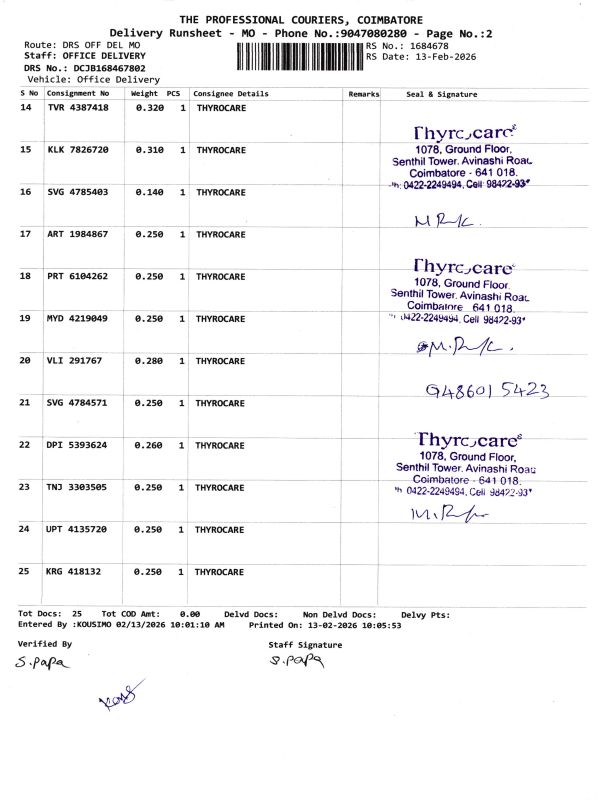 THE PROFESSIONAL COURIERS, COIMBATORE
Delivery Runsheet - MO - Phone No.:9047080280 - Page No.:2
Route: DRS OFF DEL MO
RS No.: 1684678
Staff: OFFICE DELIVERY
RS Date: 13-Feb-2026
DRS No.: DCJB168467802
Vehicle: Office Delivery
S No Consignment No Weight PCS Consignee Details Remarks Seal & Signature
14 TVR 4387418 0.320 1 THYROCARE
Thyrocare
1078, Ground Floor,
15 KLK 7826720 0.310 1 THYROCARE
Senthil Tower. Avinashi Road
Coimbatore - 641 018.
Ph: 0422-2249494, Cell: 98422-93
16 SVG 4785403 0.140 1 THYROCARE
17 ART 1984867 0.250 1 THYROCARE
Thyrocare
18 PRT 6104262 0.250 1 THYROCARE
1078, Ground Floor
Senthil Tower. Avinashi Road
Coimbatore 641 018.
19 MYD 4219049 0.250 1 THYROCARE
0422-2249494, Cell 98422-93
20 VLI 291767 0.280 1 THYROCARE
9486015423
21 SVG 4784571 0.250 1 THYROCARE
Thyrocare
22 DPI 5393624 0.260 1 THYROCARE
1078, Ground Floor,
Senthil Tower. Avinashi Road
Coimbatore - 641 018.
23 TNJ 3303505 0.250 1 THYROCARE
Ph 0422-2249494, Cell 98422-93
24 UPT 4135720 0.250 1 THYROCARE
25 KRG 418132 0.250 1 THYROCARE
Tot Docs: 25 Tot COD Amt: 0.00 Delvd Docs: Non Delvd Docs: Delvy Pts:
Entered By :KOUSIMO 02/13/2026 10:01:10 AM Printed On: 13-02-2026 10:05:53
Verified By Staff Signature
S.Papa S.Papa